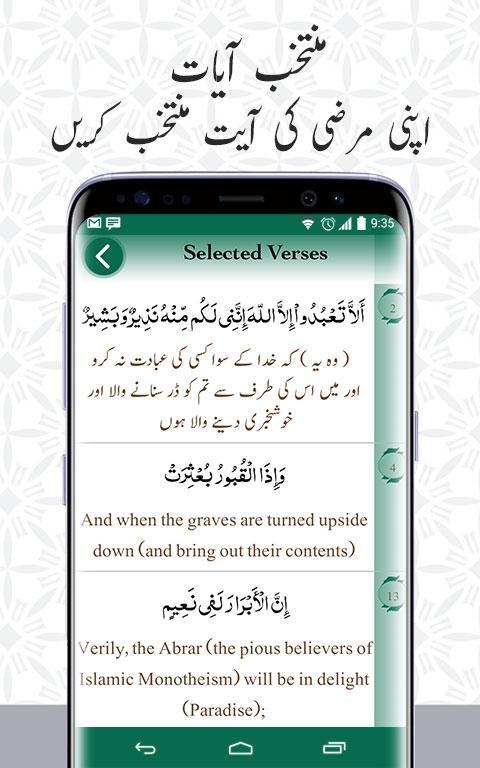 منتخب آیات
اپنی مرضی کی آیت منتخب کریں
9:35
Selected Verses
أَلاَّ تَعْبُدُواْ إِلاَّ اللّهَ إِنَّنِي لَكُم مِّنْهُ نَذِيرٌ وَبَشِيرٌ
2
( وہ یہ ) کہ خدا کے سوا کسی کی عبادت نہ کرو
اور میں اس کی طرف سے تم کو ڈر سنانے والا اور
خوشخبری دینے والا ہوں
وَإِذَا الْقُبُورُ بُعْثِرَتْ
4
And when the graves are turned upside
down (and bring out their contents)
إِنَّ الْأَبْرَارَ لَفِي نَعِيمٍ
13
Verily, the Abrar (the pious believers of
Islamic Monotheism) will be in delight
(Paradise);